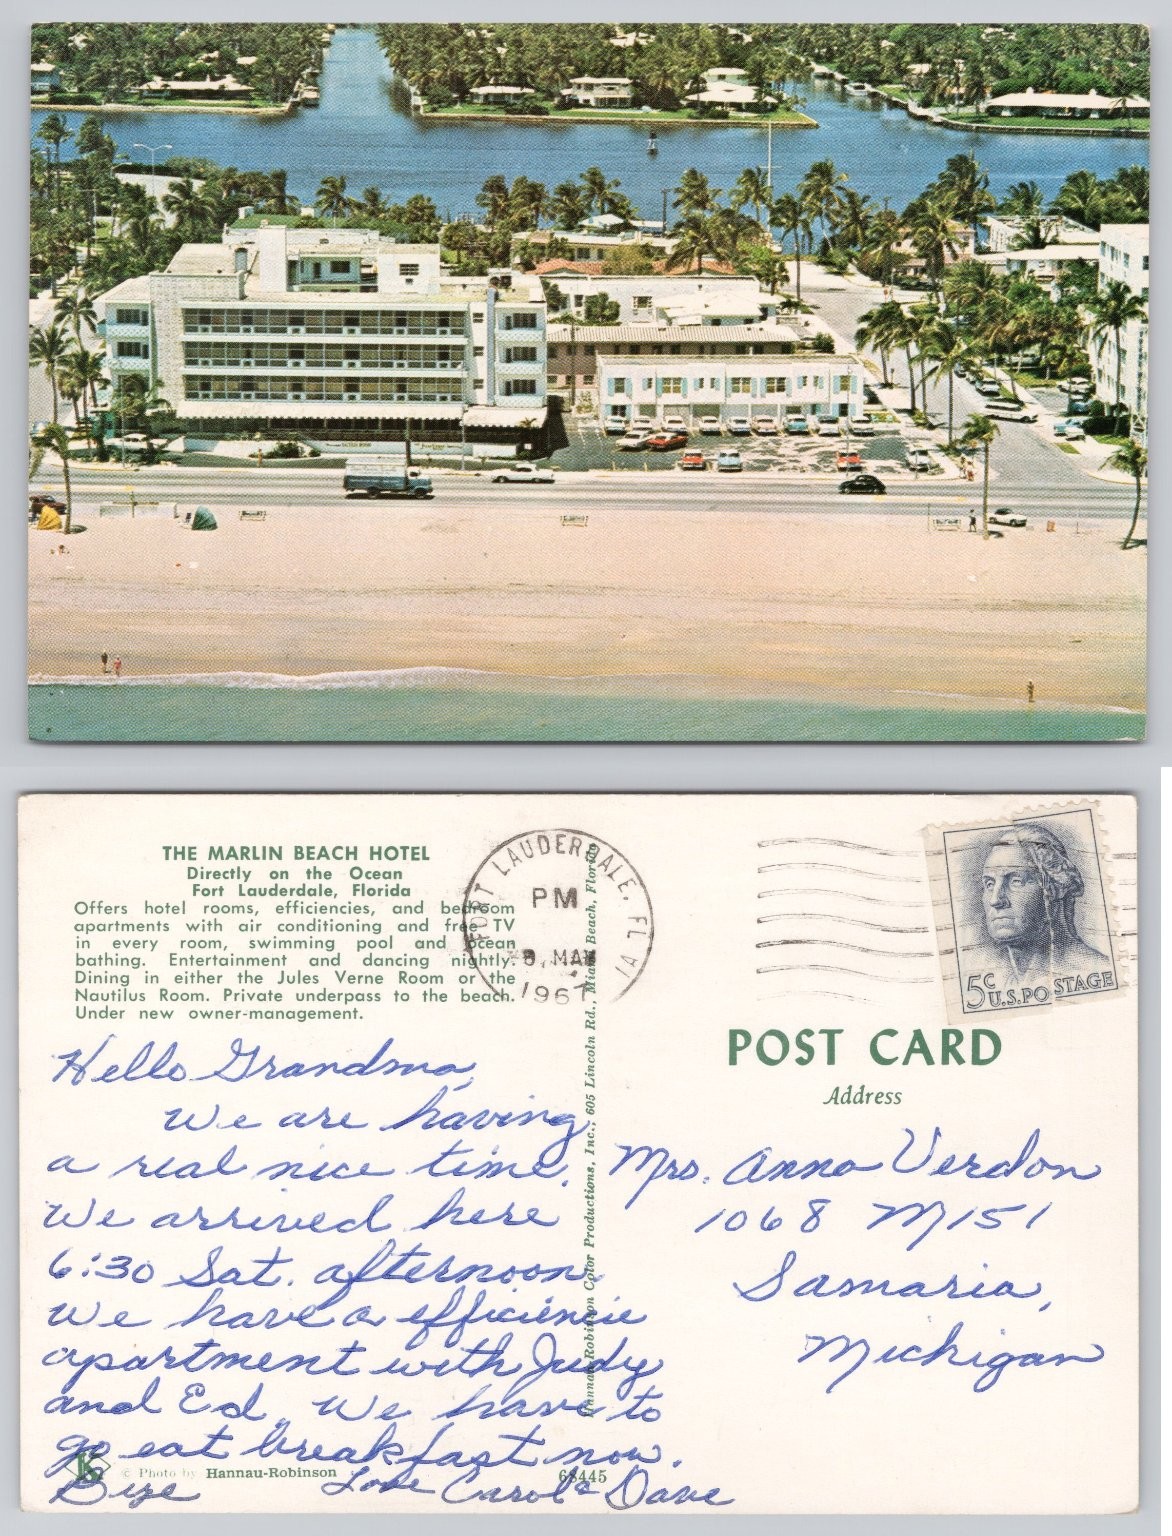 THE MARLIN BEACH HOTEL
Directly on the Ocean
Fort Lauderdale, Florida
Offers hotel rooms, efficiencies, and bedroom
apartments with air conditioning and free TV
in every room, swimming pool and ocean
bathing. Entertainment and dancing nightly.
Dining in either the Jules Verne Room or the
Nautilus Room. Private underpass to the beach.
Under new owner-management.
FORT LAUDERDALE, FLA
PM
MAY
1967
5c
U.S. POSTAGE
POST CARD
Address
Hello Grandma,
We are having
a real nice time.
We arrived here
6:30 Sat. afternoon.
We have a efficiencie
apartment with Judy
and Ed. We have to
go eat breakfast now.
Bize
Love Carol & Dave
Mrs. Anna Verdon
1068 M151
Samaria,
Michigan
Hannau-Robinson Color Productions, Inc., 605 Lincoln Rd., Miami Beach, Florida
K
© Photo by Hannau-Robinson
68445